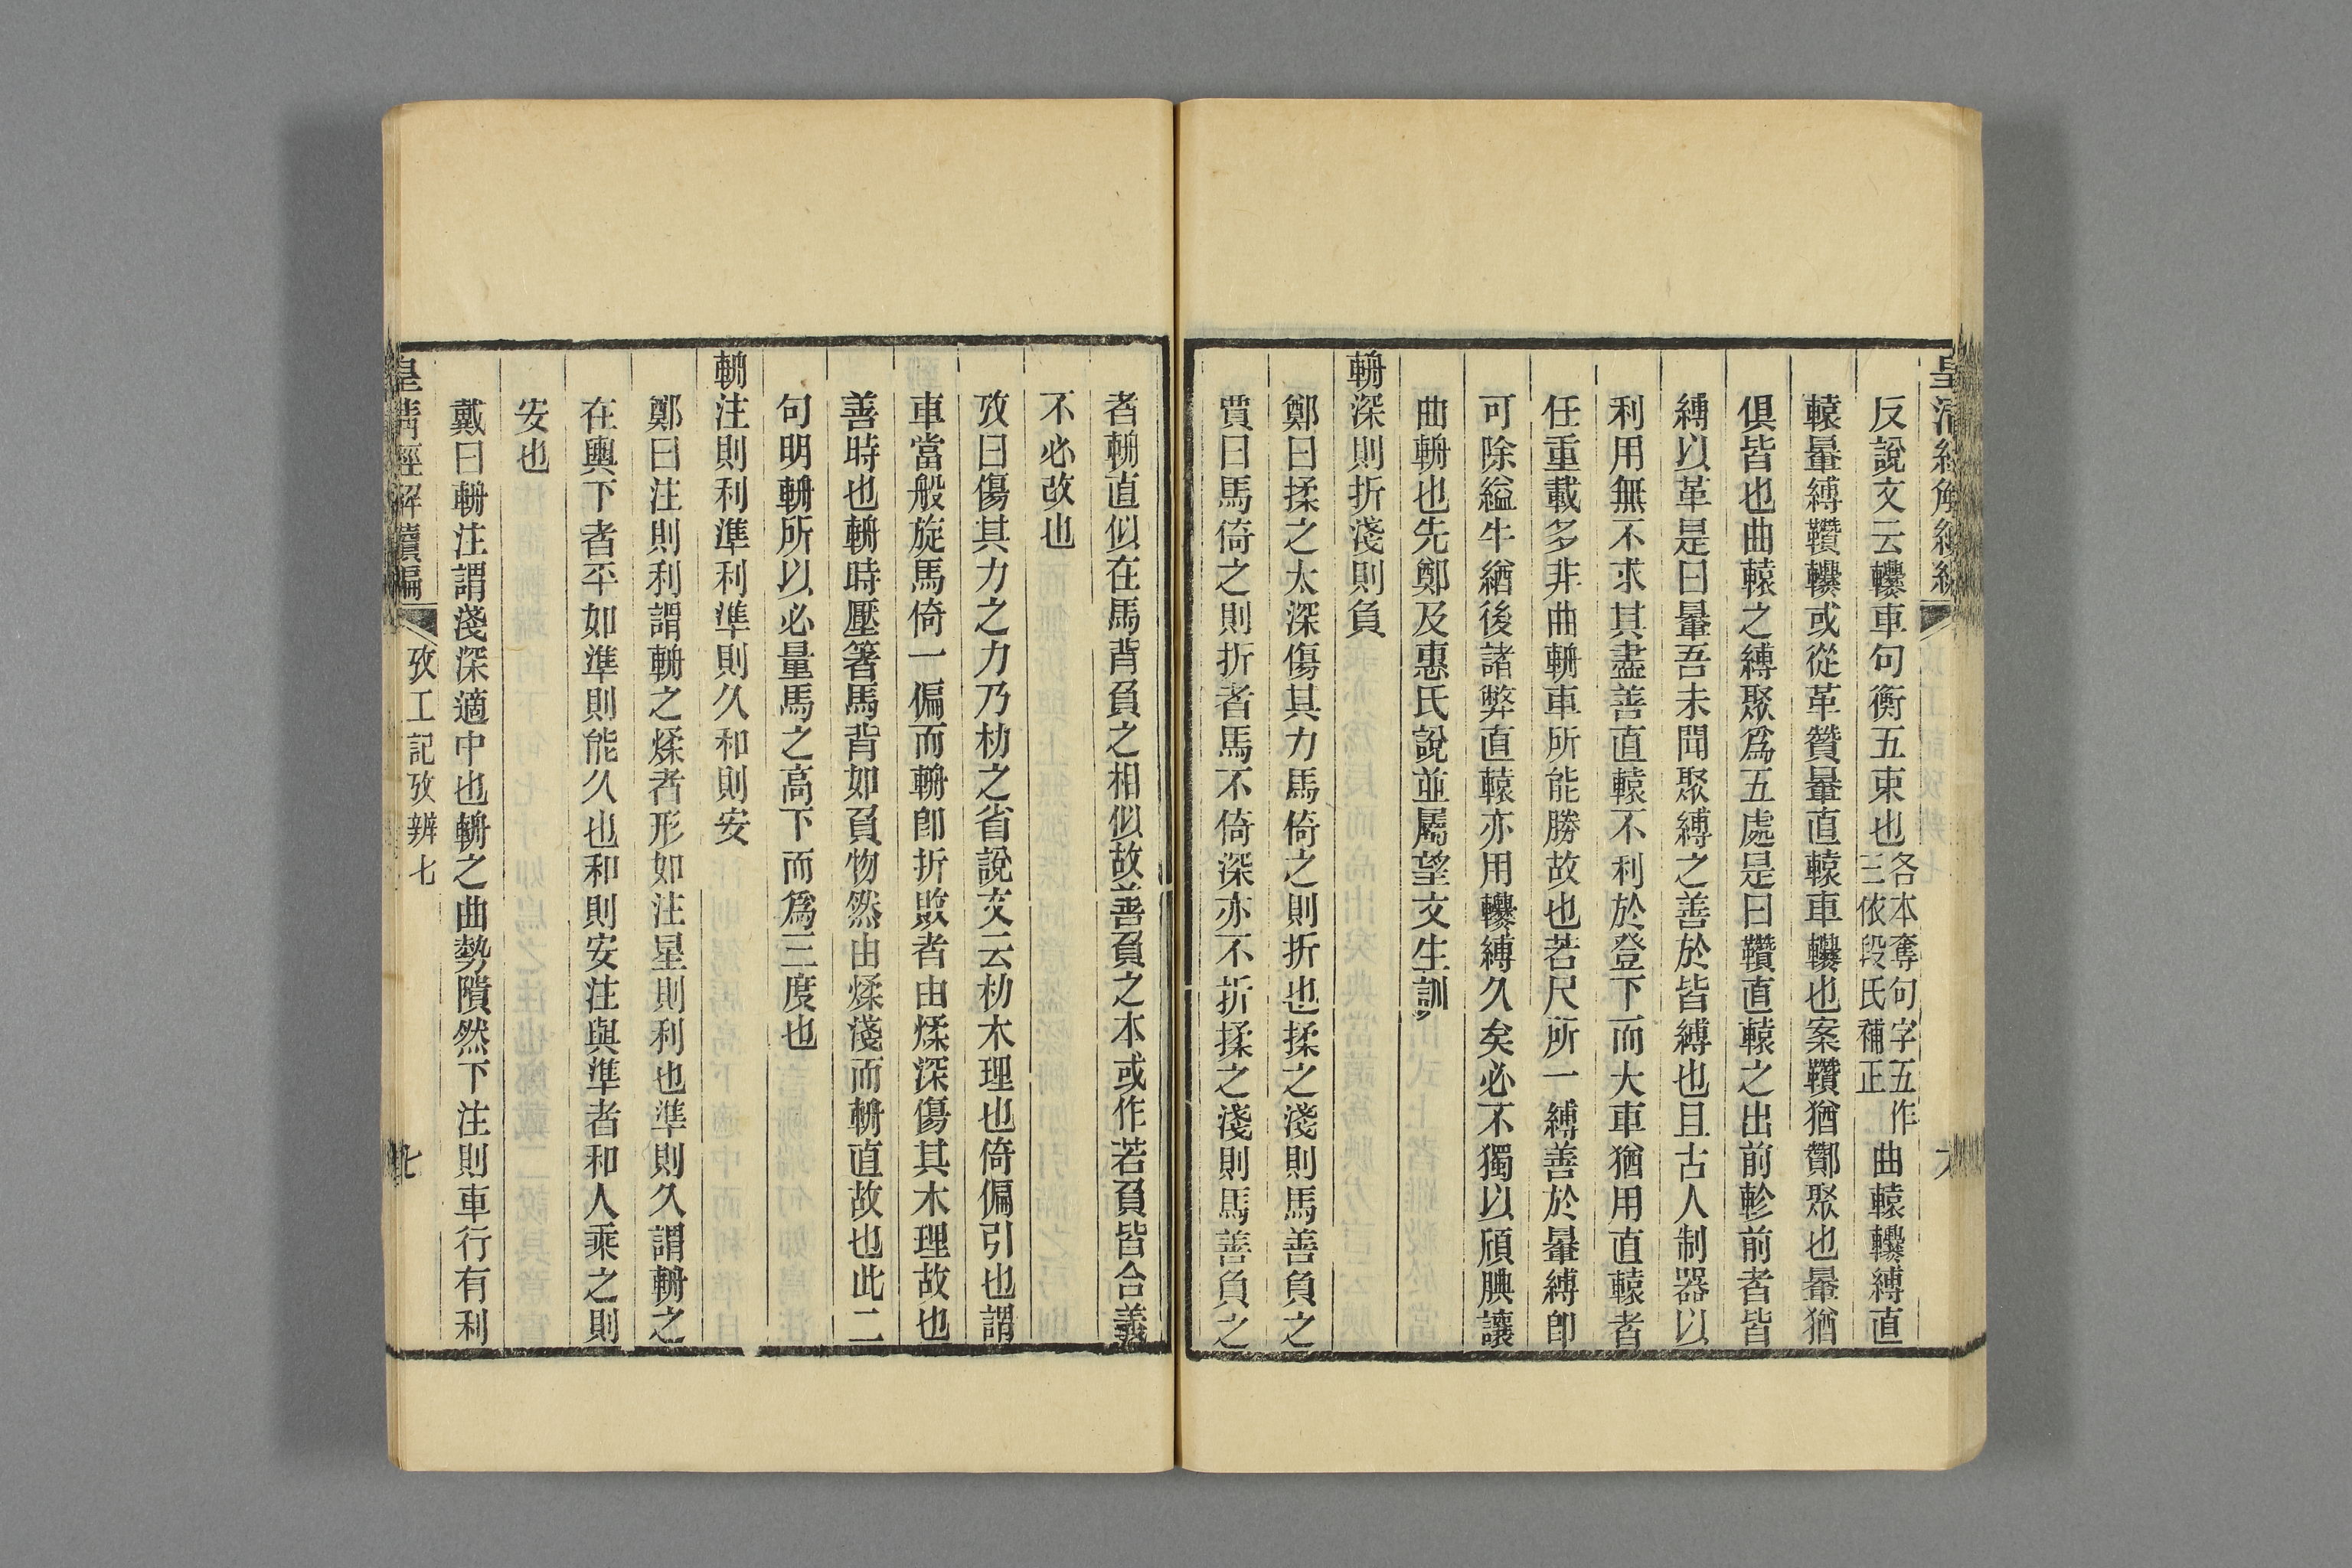 反說文云䡺車句衡五束也各本奪句字五作三依段氏補正曲轅䡺縛直
轅暈縛䪜䡺或從革贊暈直轅車䡺也案䪜猶酇聚也暈猶
俱皆也曲轅之縛聚爲五處是曰䪜直轅之出前軫前者皆
縛以革是曰暈吾未聞聚縛之善於皆縛也且古人制器以
利用無不求其盡善直轅不利於登下而大車猶用直轅者
任重載多非曲輈車所能勝故也若尺所一縛善於暈縛卽
可除縊牛緧後諸弊直轅亦用䡺縛久矣必不獨以頎腆讓
曲輈也先鄭及惠氏說並屬望文生訓
輈深則折淺則負
鄭曰揉之大深傷其力馬倚之則折也揉之淺則馬善負之
賈曰馬倚之則折者馬不倚深亦不折揉之淺則馬善負之
者輈直似在馬背負之相似故善負之本或作若負皆合義
不必改也
攷曰傷其力之力乃朸之省說文云朸木理也倚偏引也謂
車當般旋馬倚一偏而輈卽折敗者由煣深傷其木理故也
善時也輈時壓箸馬背如負物然由煣淺而輈直故也此二
句明輈所以必量馬之高下而爲三度也
輈注則利準利準則久和則安
鄭曰注則利謂輈之煣者形如注星則利也準則久謂輈之
在輿下者平如準則能久也和則安注與準者和人乘之則
安也
戴曰輈注謂淺深適中也輈之曲勢隤然下注則車行有利
皇清經解續編 攷工記攷辨七 七